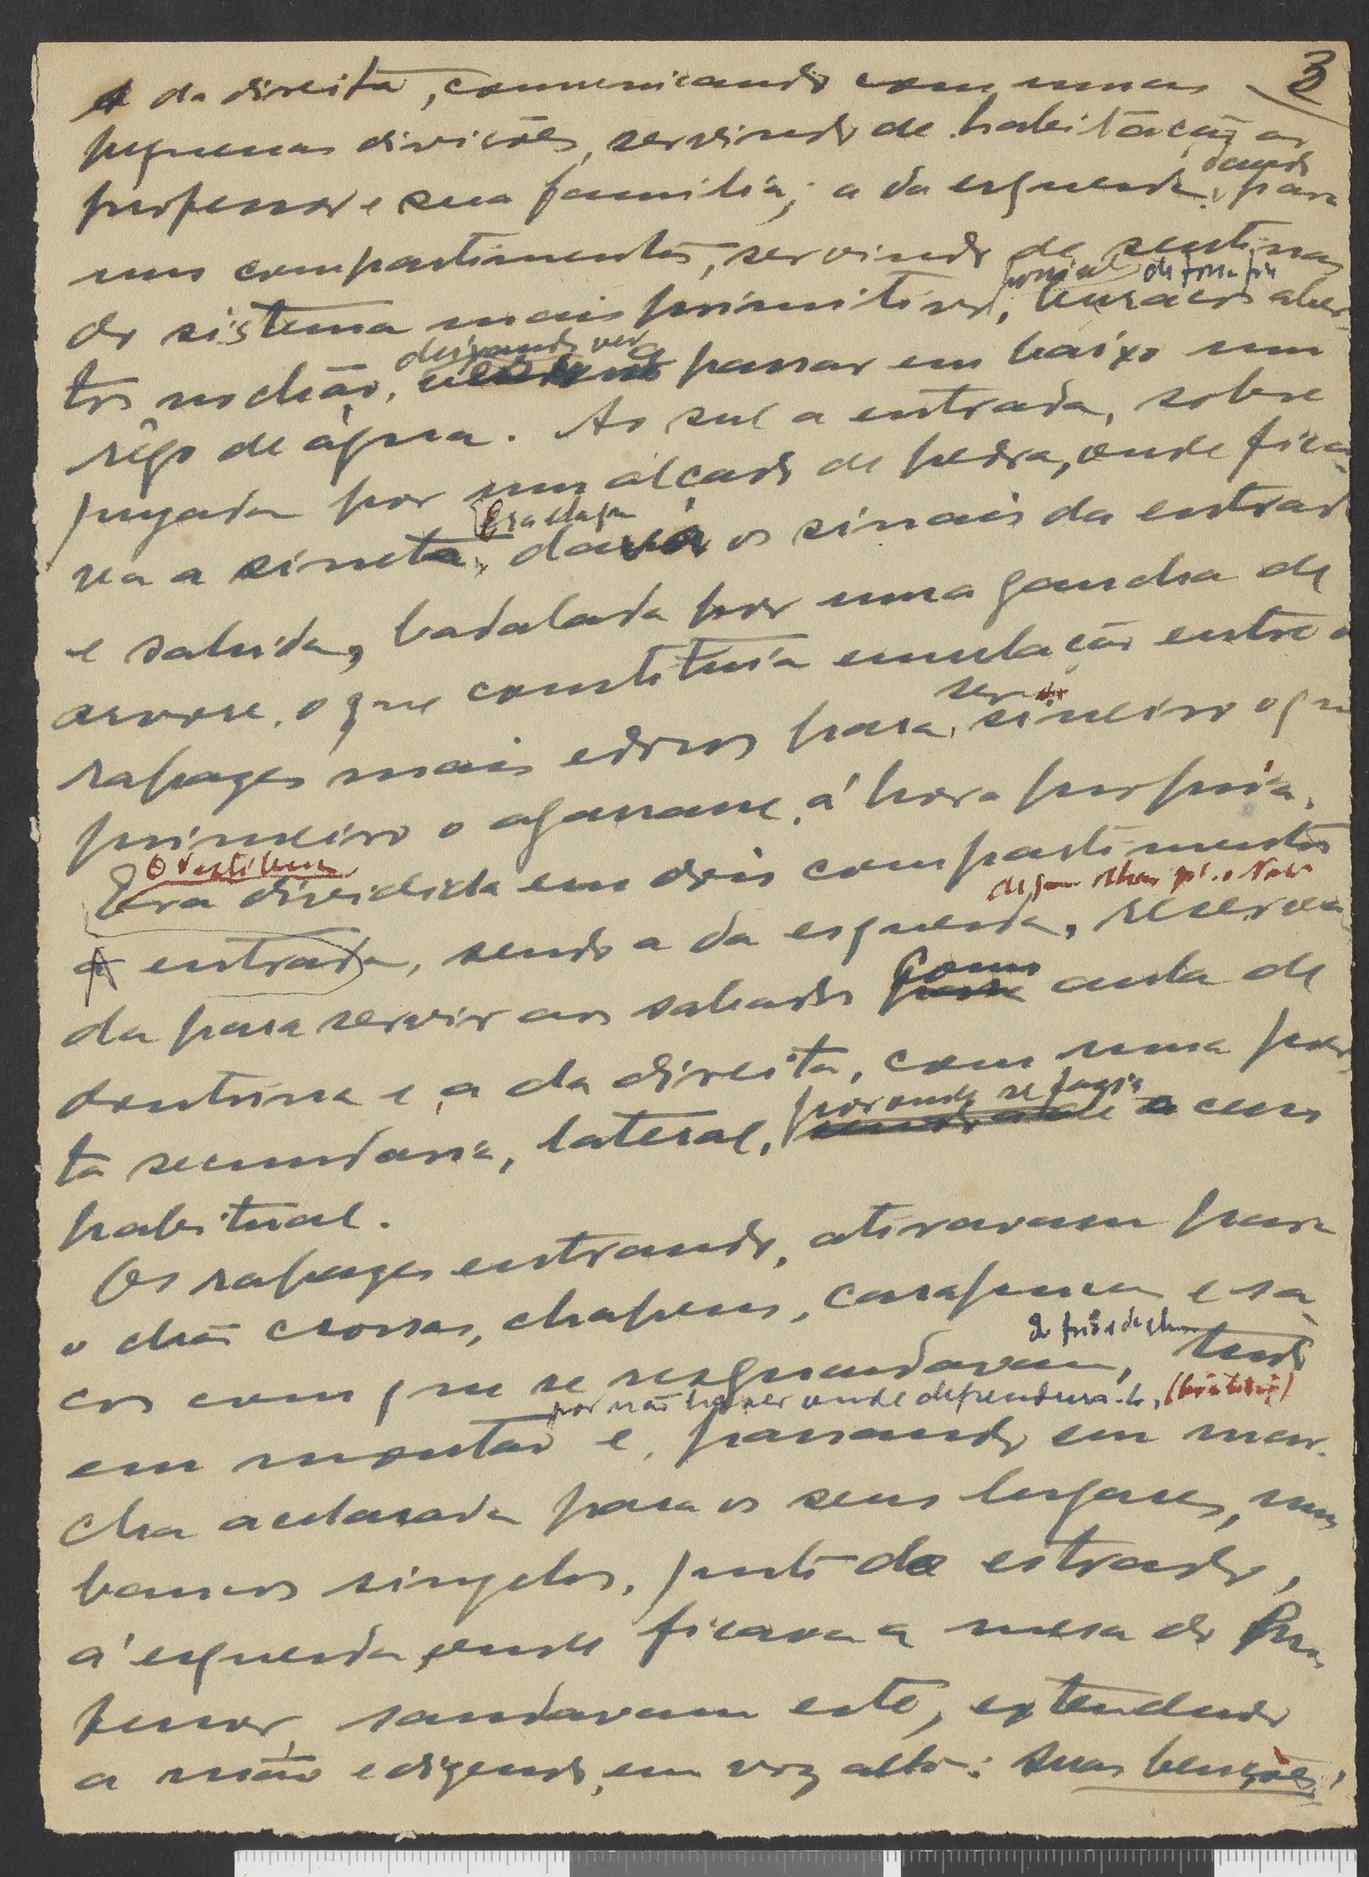 3
A da direita, comunicando com umas
pequenas divisões, servindo de habitação ao
dando
professor e sua familia; a da esquerda, para
um compartimento, servindo de sentinas
do sistema mais primitivo, buracos aber-
deixando ver
tos no chão, a passar em baixo um
rêgo de água. Ao sul a entrada, sobre
puxada por um alçado de pedra, onde fica-
va a sineta, os sinais da entrada
e sahida, badalada por uma gancha de
arvore, o que constituia emulação entre os
ser
rapazes mais edosos para sineiro o que
primeiro o agarrasse, á hora propria.
O vestibulo
Era dividida em dois compartimentos
A entrada, sendo a da esquerda, reserva-
como
da para servir aos sabados para aula de
doutrina e a da direita, com uma por-
por onde se fazia
ta secundaria, lateral, o acesso
habitual.
Os rapazes entrando, atiravam para
o chão croças, chapeus, carapuças e sa-
cos com que se resguardavam, tudo
por não haver onde dependura-lo,
em montão e, passando em mar-
cha acelarada para os seus lugares, nuns
bancos singelos, junto do estrado,
á esquerda, onde ficava a mesa do Pro-
fessor, saudavam este, extendendo
a mão e dizendo, em voz alta: suas bençoes,